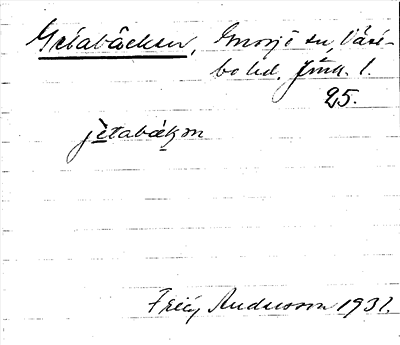 Getabäcken, Gnosjö sn, Väst-
bo hd, Jönk. l.
25.
jètabäkən
Frey Andersson 1931.